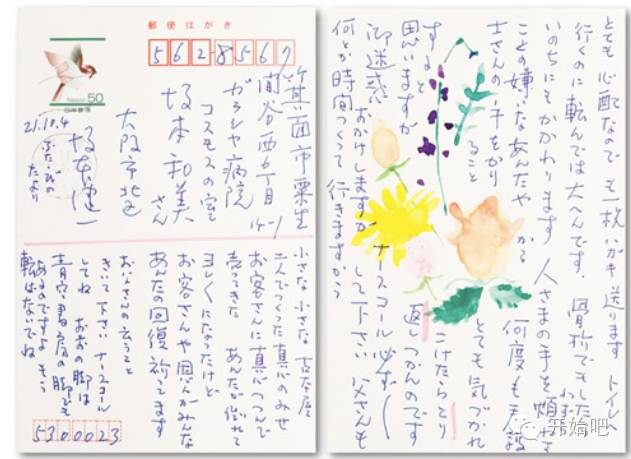 郵便はがき
562-8567
日本郵便
50
21.10.4
ふたゝびの
たより
箕面市粟生
間谷西6丁目
14-1
ガラシヤ病院
コスモスの室
坂本和美さん
大阪市北区
坂本健一
小さな小さな古本屋
二人でつくった真心のみせ
お客さんに真心つつんで
売ってきた あんたが倒れて
ヨレくになったけど
お客さんや恩人がみんな
あんたの回復祈ってます
おいさんの云うこと
きいて下さい ナースコール
してね お前の脚は
青空書房の脚でも
あるのですよ もう
転ばないでね
5300023
とても心配なのでも一枚ハガキ送ります トイレへ
行くのに転んでは大へんです。骨折でもしたら
いのちにもかかわります 人さまの手を煩わす
ことの嫌いなあんたや から 何度も
士さんの手をかり ること とても気づかれ
すると こけたらとり
思いますが 返しつかんのです
御迷惑 おかけしますが ナースコール必ず
して下さい 父さんも
何とか時間つくって 行きますから
开始吧